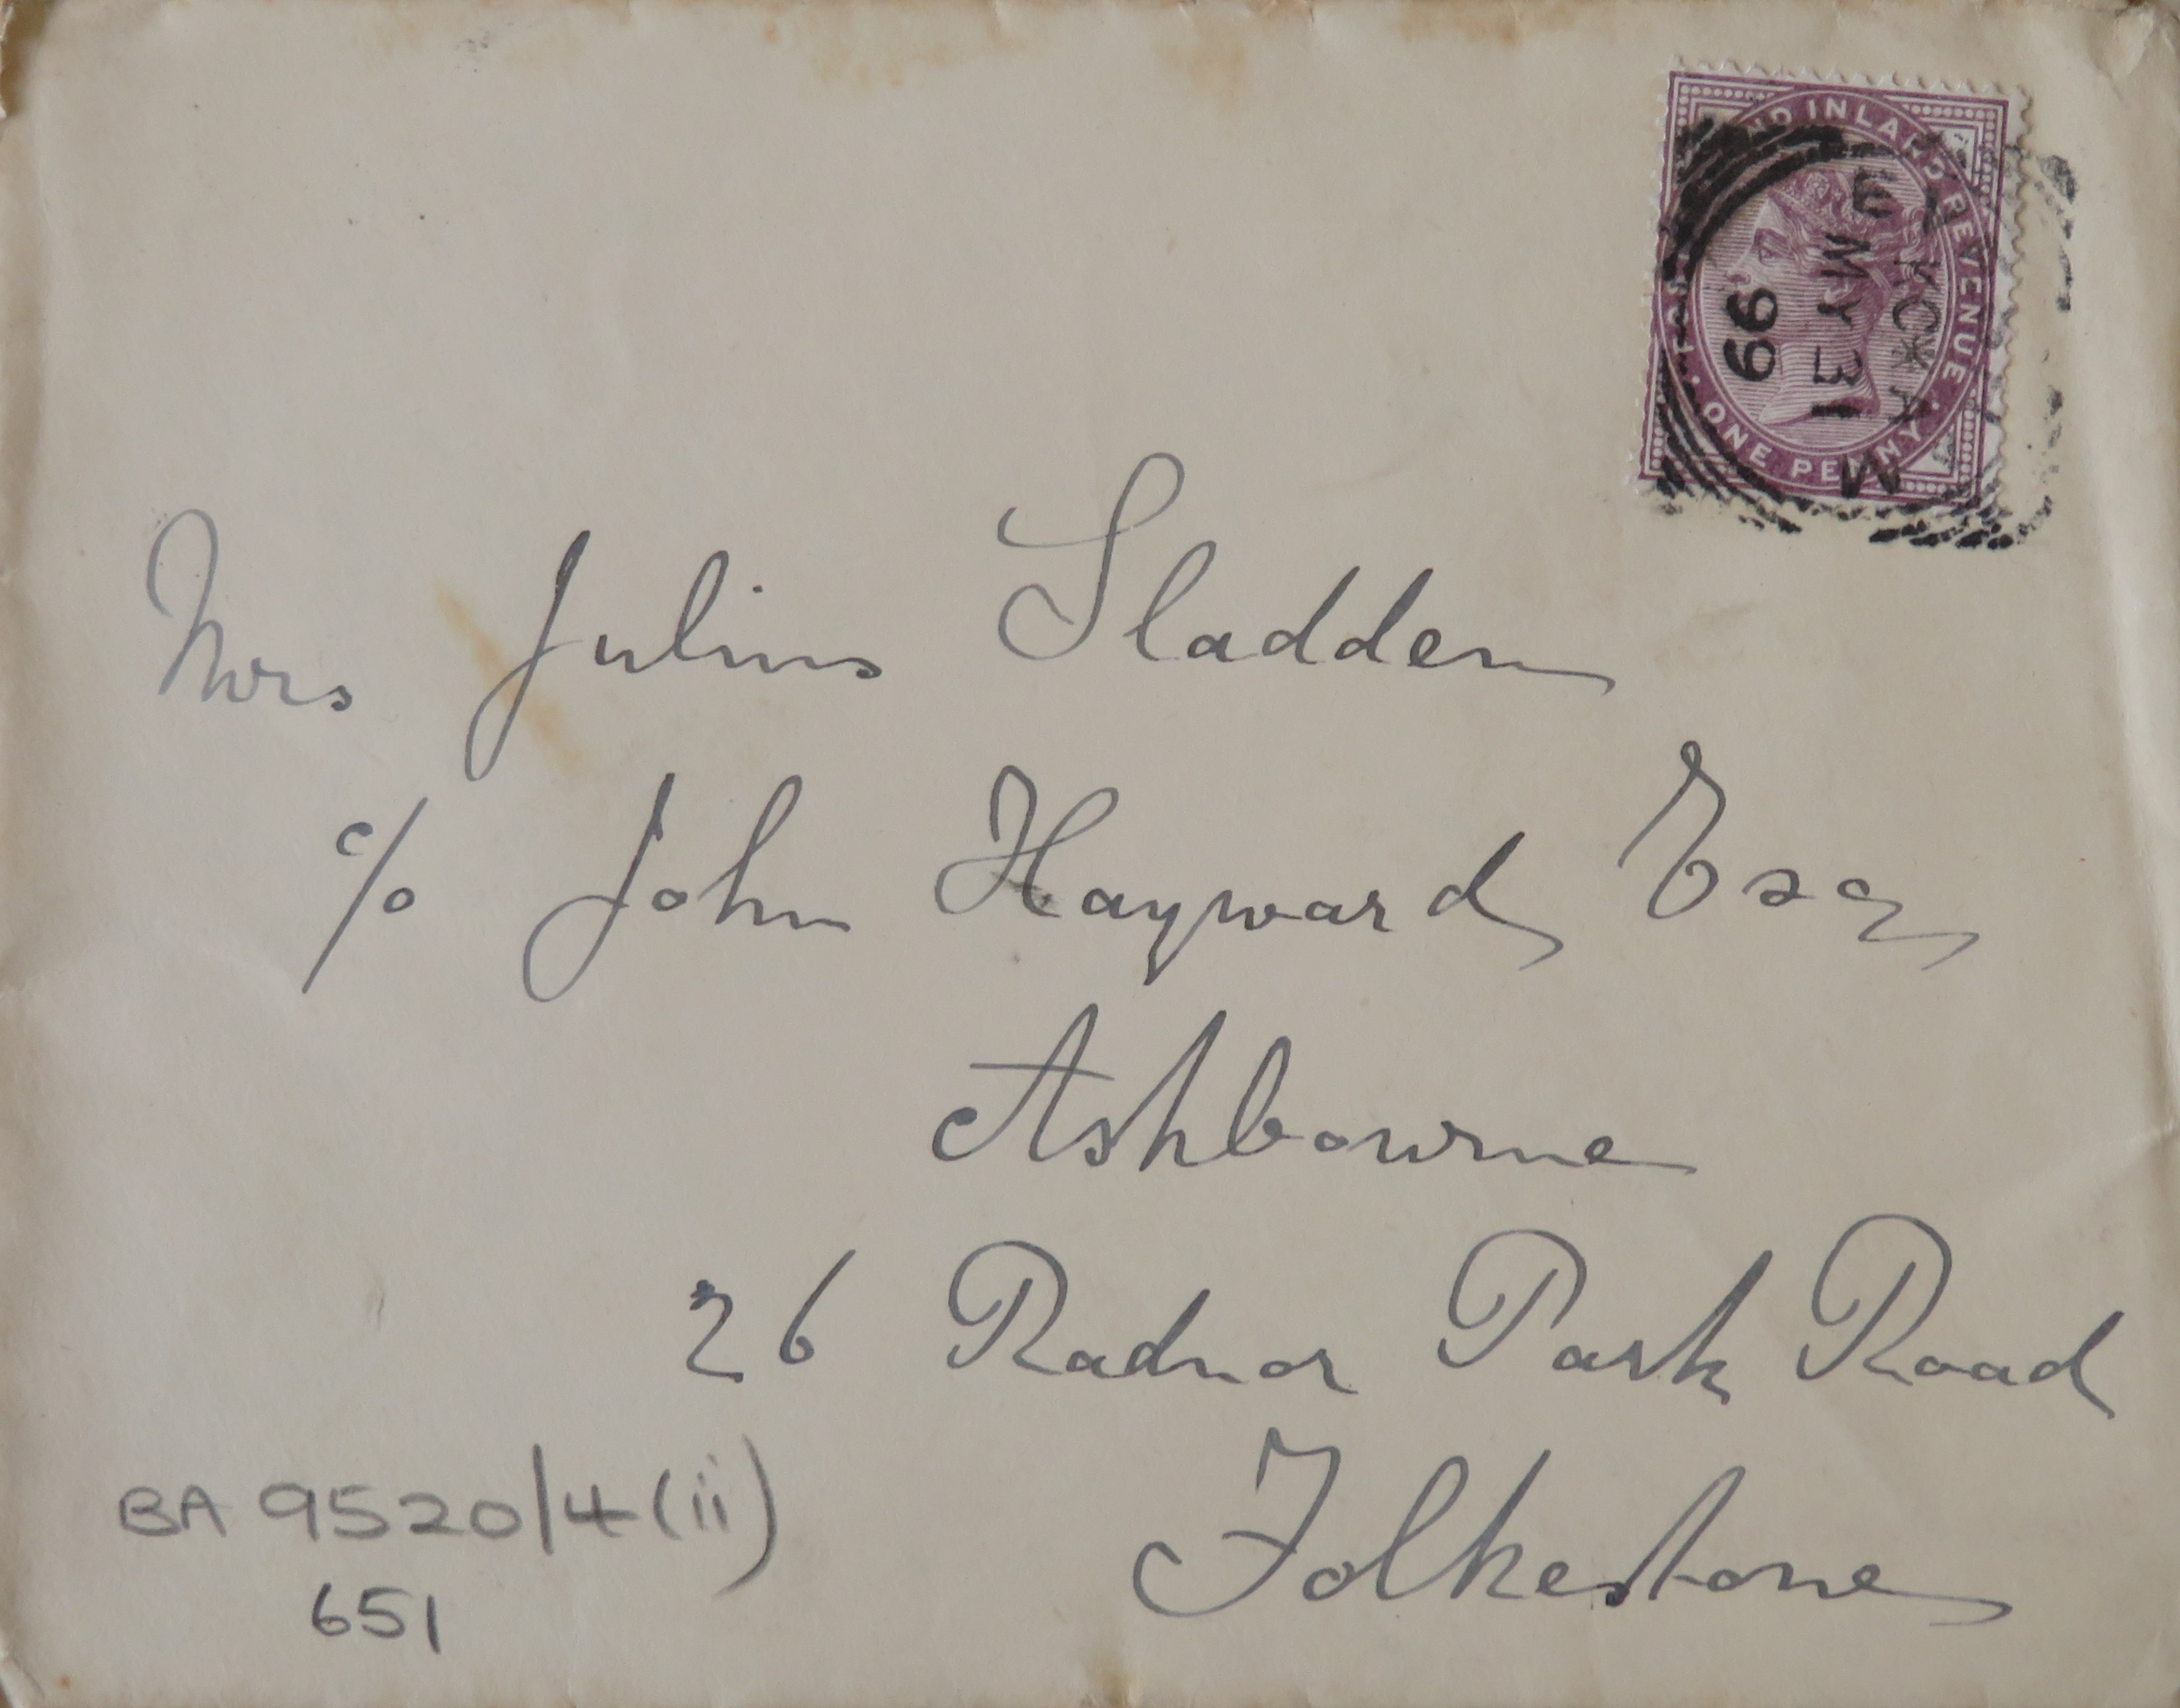 ND INLAND REVENUE
ONE PENNY
MY 31
99
Mrs Julius Sladden
c/o John Hayward Esq
Ashbourne
26 Radnor Park Road
Folkestone
BA 9520/4(ii)
651